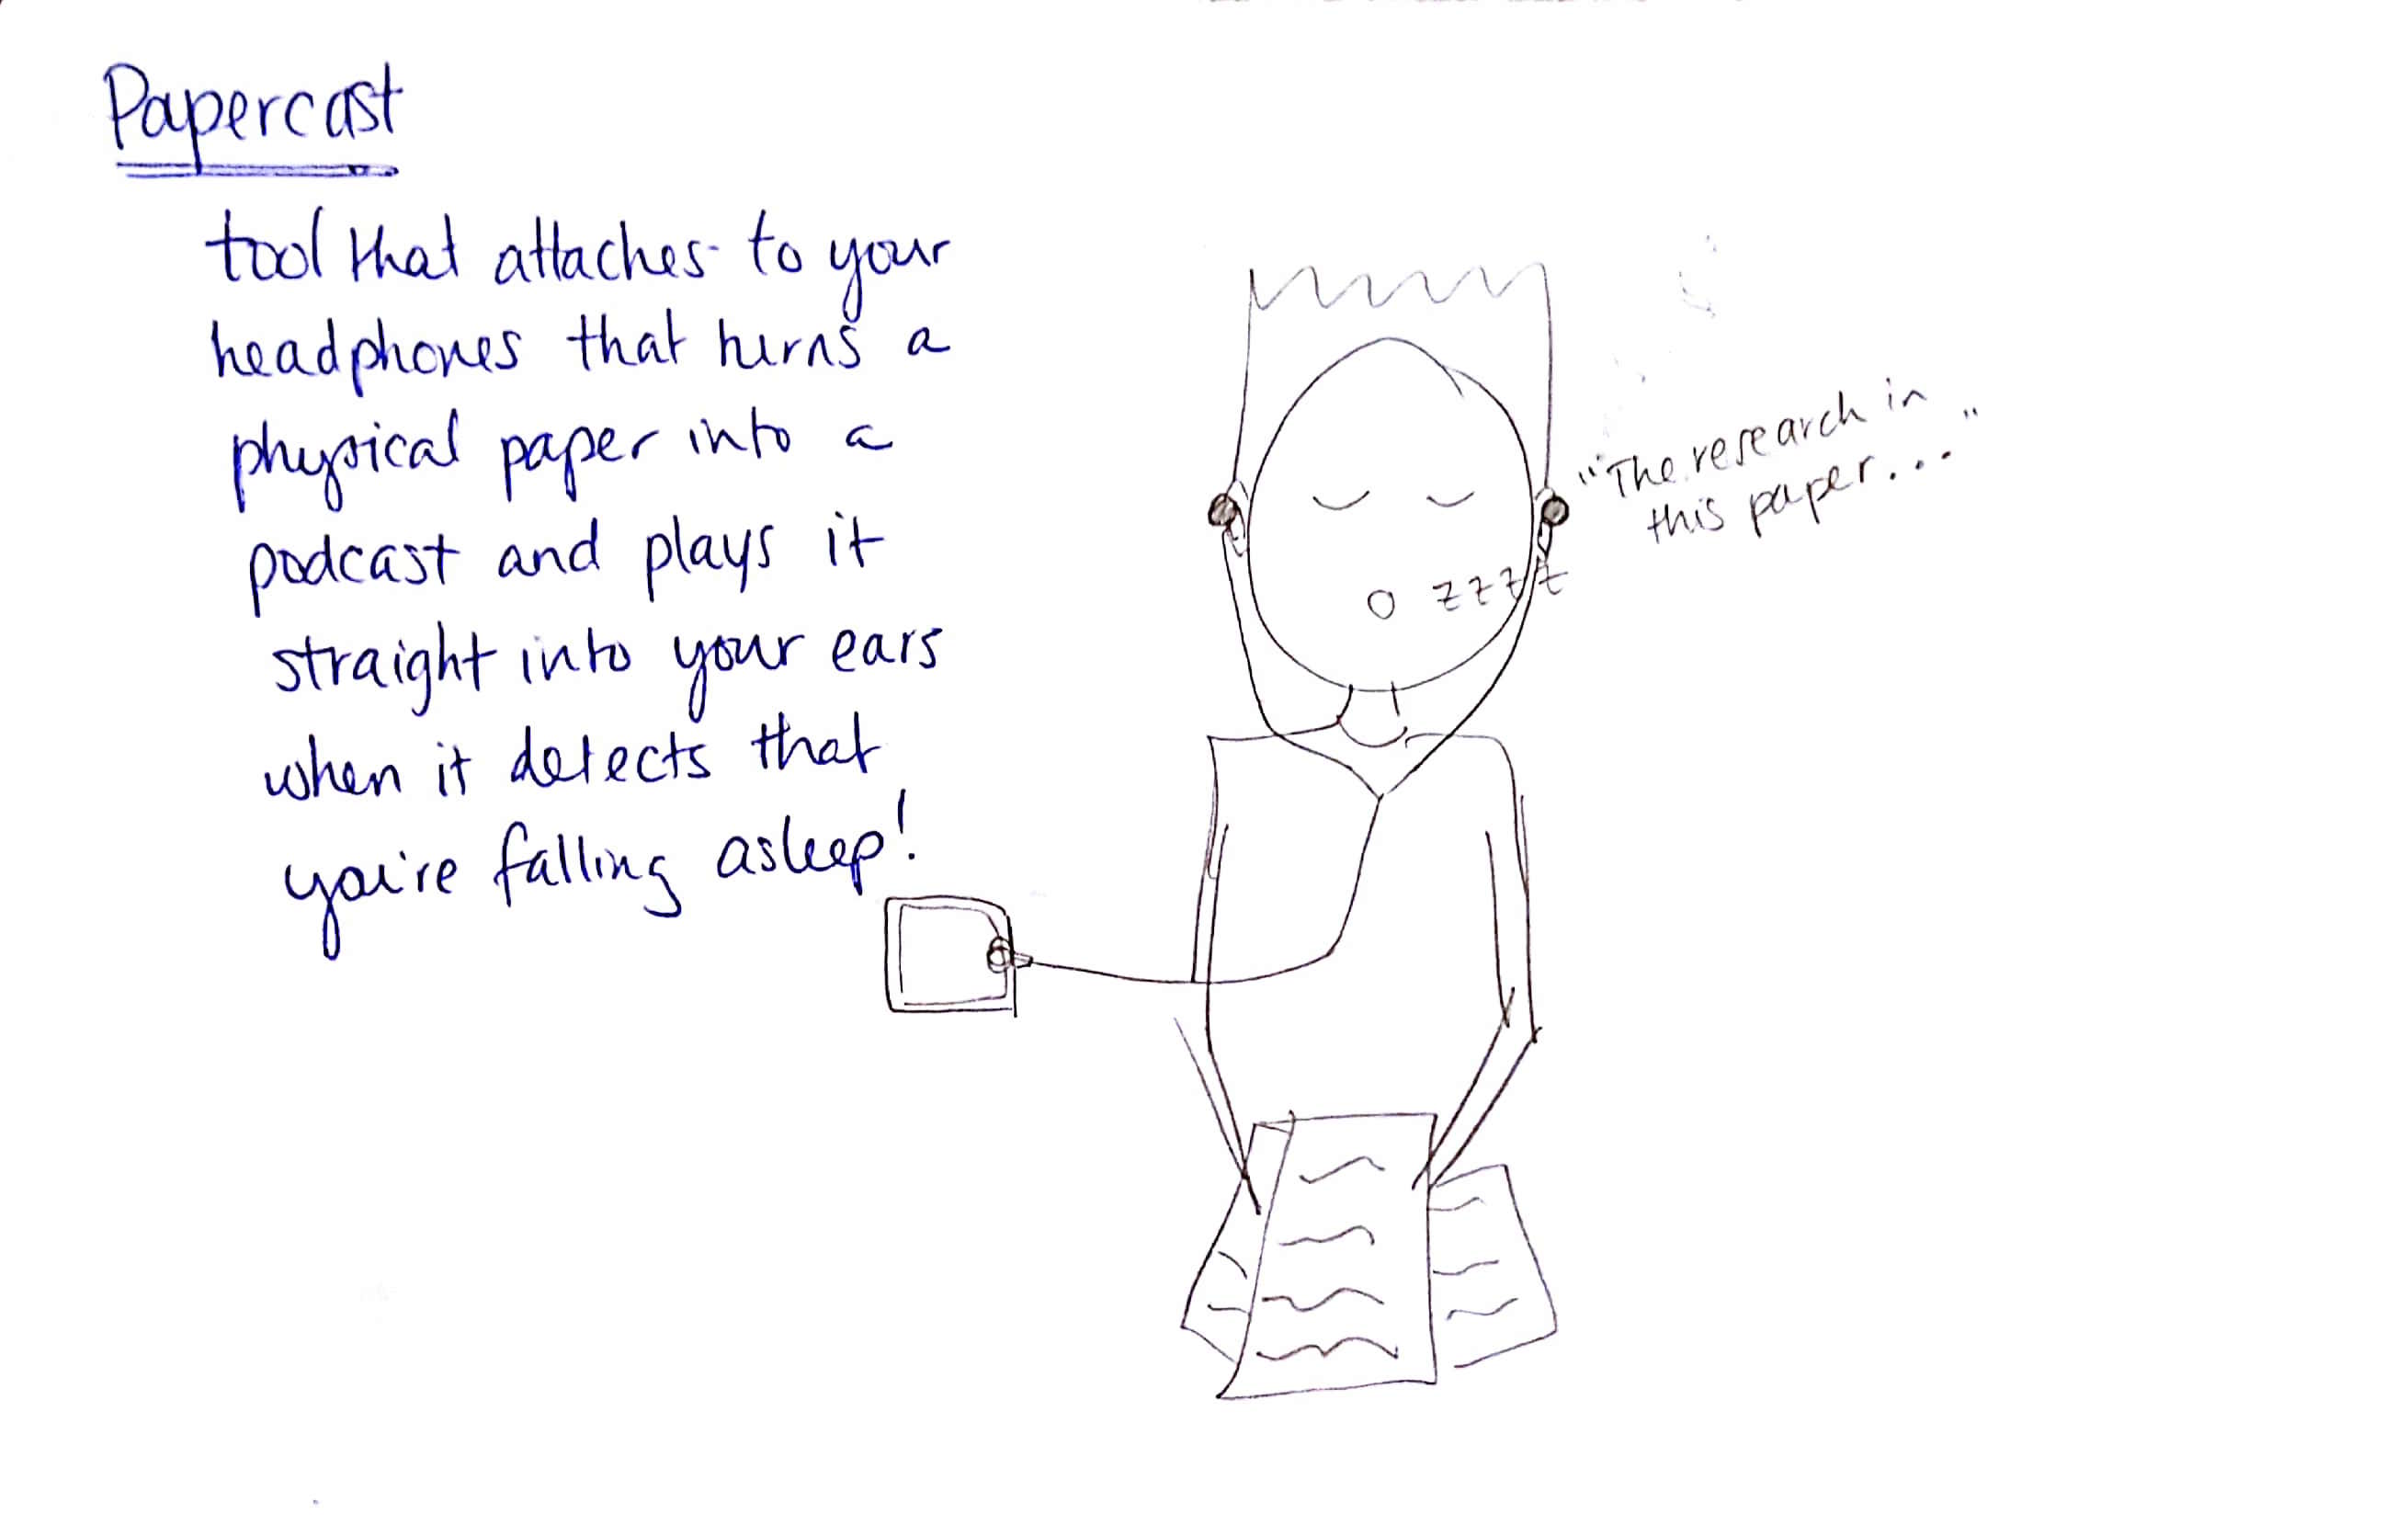 Papercast
tool that attaches to your
headphones that turns a
physical paper into a
podcast and plays it
straight into your ears
when it detects that
you're falling asleep!
"The research in
this paper..."
zzzz